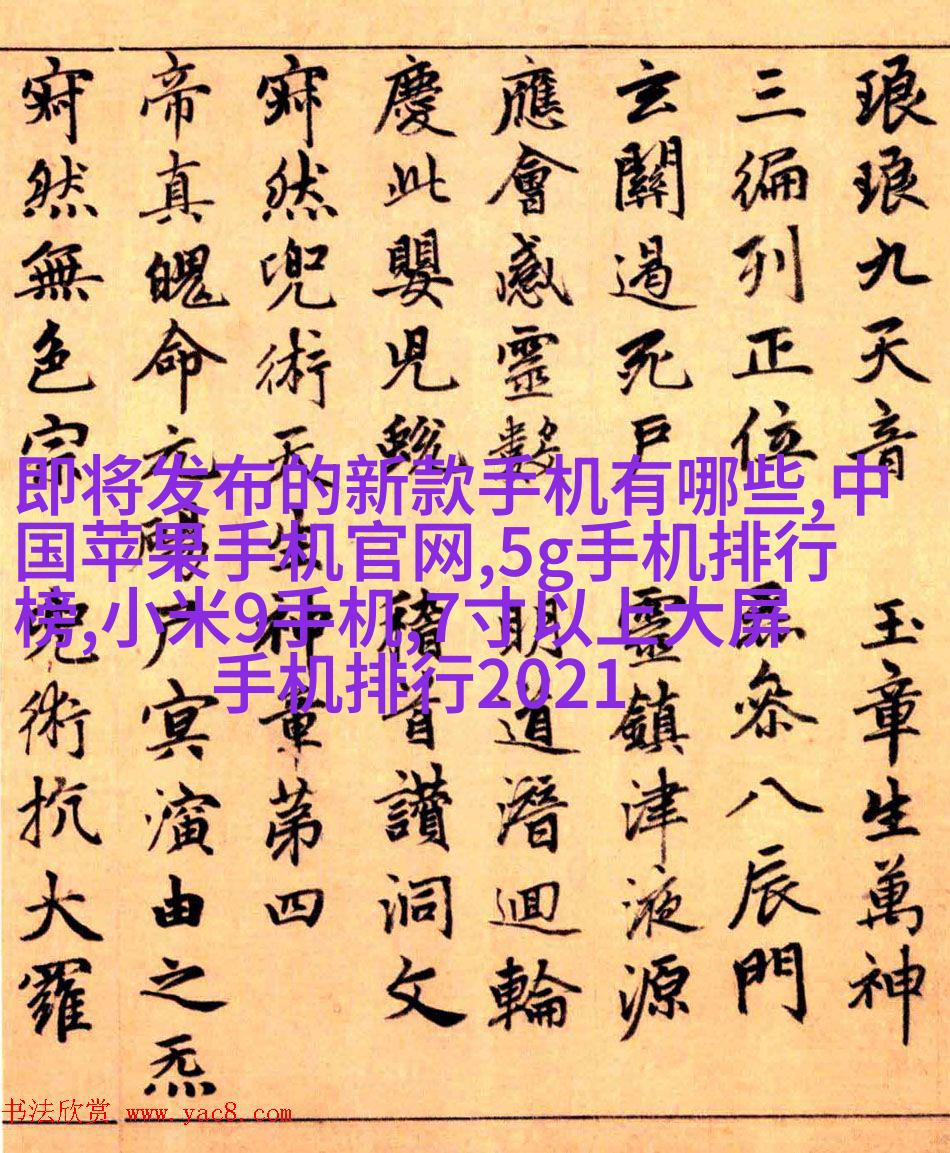 琅琅九天音 玉章生萬神
三徧列正位 叅八辰門
玄關過死戶 靈鎮津液源
應會感靈數 明道潛迴輪
慶此嬰兒蛻 稽首讚洞文
寂然兜術天生神章第四
帝真魄命元陽冥演由之炁
寂然無色宗 兜術抗大羅
即将发布的新款手机有哪些,中
国苹果手机官网,5g手机排行
榜,小米9手机,7寸以上大屏
手机排行2021
书法欣赏 www.yac8.com